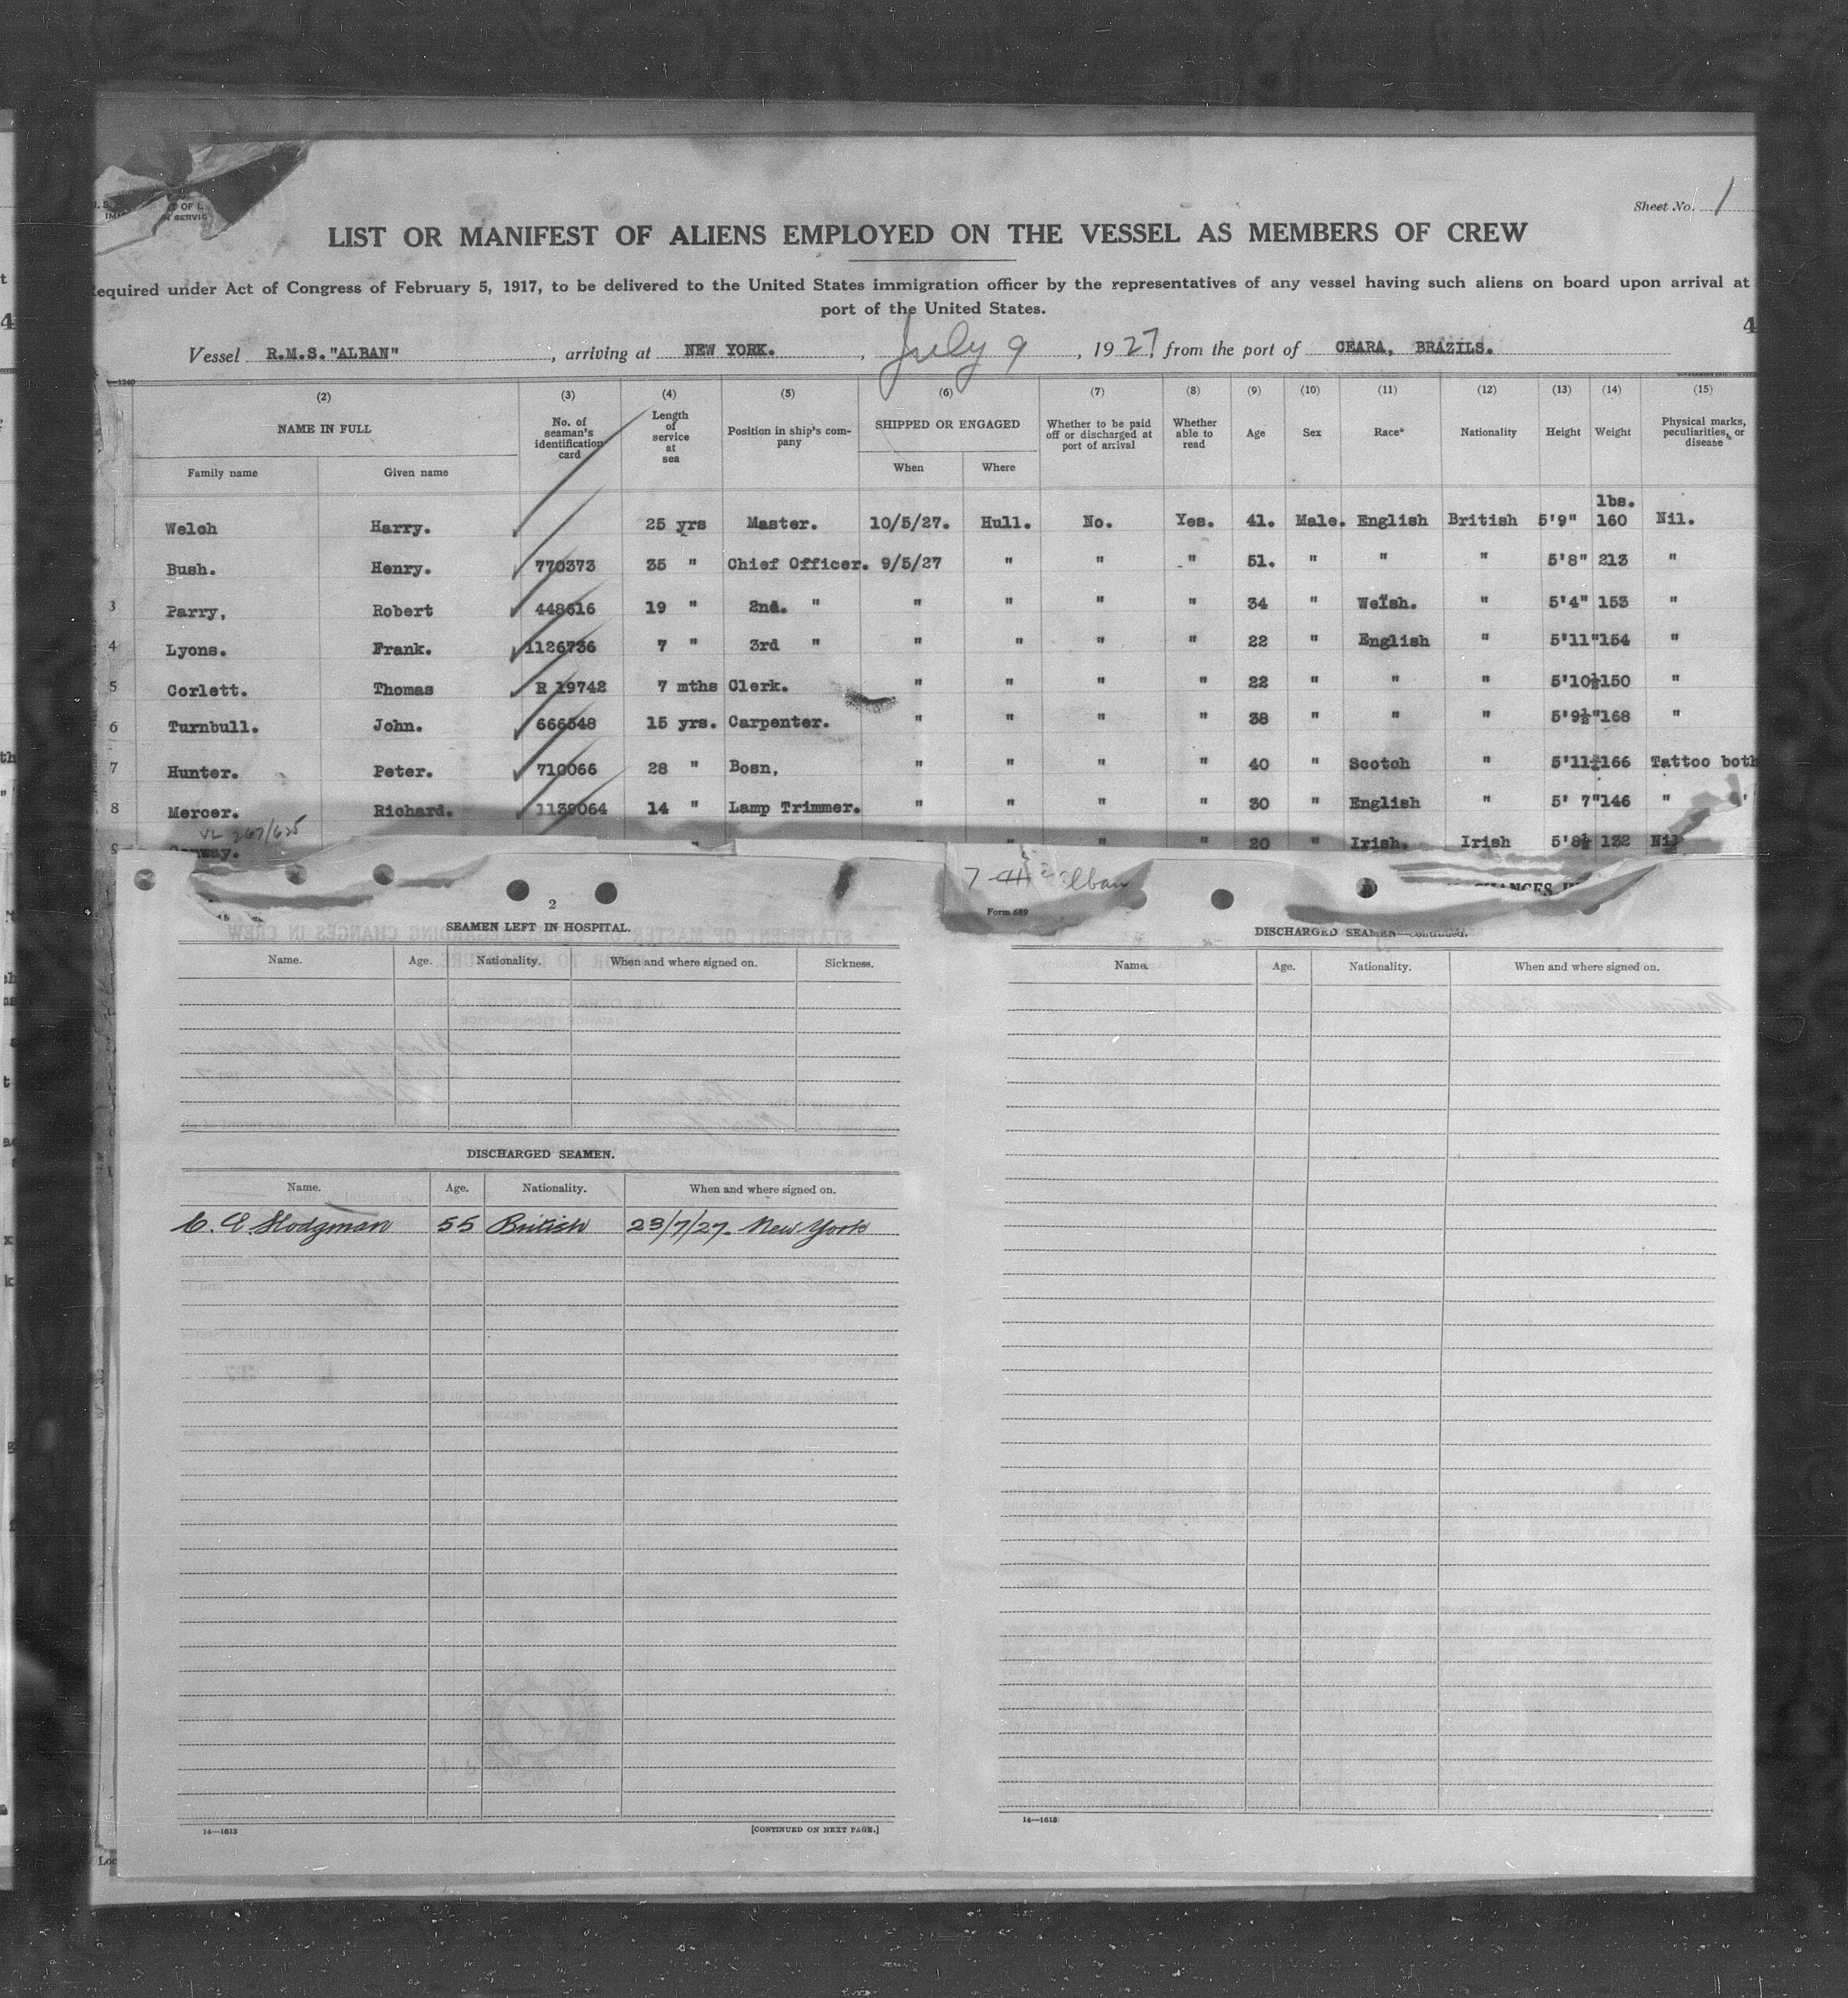 Sheet No. 1
LIST OR MANIFEST OF ALIENS EMPLOYED ON THE VESSEL AS MEMBERS OF CREW
Required under Act of Congress of February 5, 1917, to be delivered to the United States immigration officer by the representatives of any vessel having such aliens on board upon arrival at
port of the United States.
4
Vessel R.M.S."ALBAN", arriving at NEW YORK., July 9, 1927, from the port of CEARA, BRAZILS.
(2) (3) (4) (5) (6) (7) (8) (9) (10) (11) (12) (13) (14) (15)
NAME IN FULL No. of seaman's identification card Length of service at sea Position in ship's company SHIPPED OR ENGAGED Whether to be paid off or discharged at port of arrival Whether able to read Age Sex Race* Nationality Height Weight Physical marks, peculiarities, or disease
Family name Given name When Where
lbs.
Welch Harry. 25 yrs Master. 10/5/27. Hull. No. Yes. 41. Male. English British 5'9" 160 Nil.
Bush. Henry. 770373 35 " Chief Officer. 9/5/27 " " " 51. " " " 5'8" 213 "
3 Parry, Robert 448616 19 " 2nd. " " " " " 34 " Welsh. " 5'4" 153 "
4 Lyons. Frank. 1126736 7 " 3rd " " " " " 22 " English " 5'11" 154 "
5 Corlett. Thomas R 19742 7 mths Clerk. " " " " 22 " " " 5'10½ 150 "
6 Turnbull. John. 666548 15 yrs. Carpenter. " " " " 38 " " " 5'9½" 168 "
7 Hunter. Peter. 710066 28 " Bosn, " " " " 40 " Scotch " 5'11½ 166 Tattoo both
8 Mercer. Richard. 1139064 14 " Lamp Trimmer. " " " " 30 " English " 5' 7" 146 "
9 Conway. " " " " 20 " Irish. Irish 5'8½ 132 Nil
7 Alban
Form 689
2
SEAMEN LEFT IN HOSPITAL.
Name. Age. Nationality. When and where signed on. Sickness.
DISCHARGED SEAMEN.
Name. Age. Nationality. When and where signed on.
C. E. Hodgman 55 British 23/7/27. New York
14—1613 [CONTINUED ON NEXT PAGE.]
CHANGES IN
DISCHARGED SEAMEN—Continued.
Name. Age. Nationality. When and where signed on.
14—1613